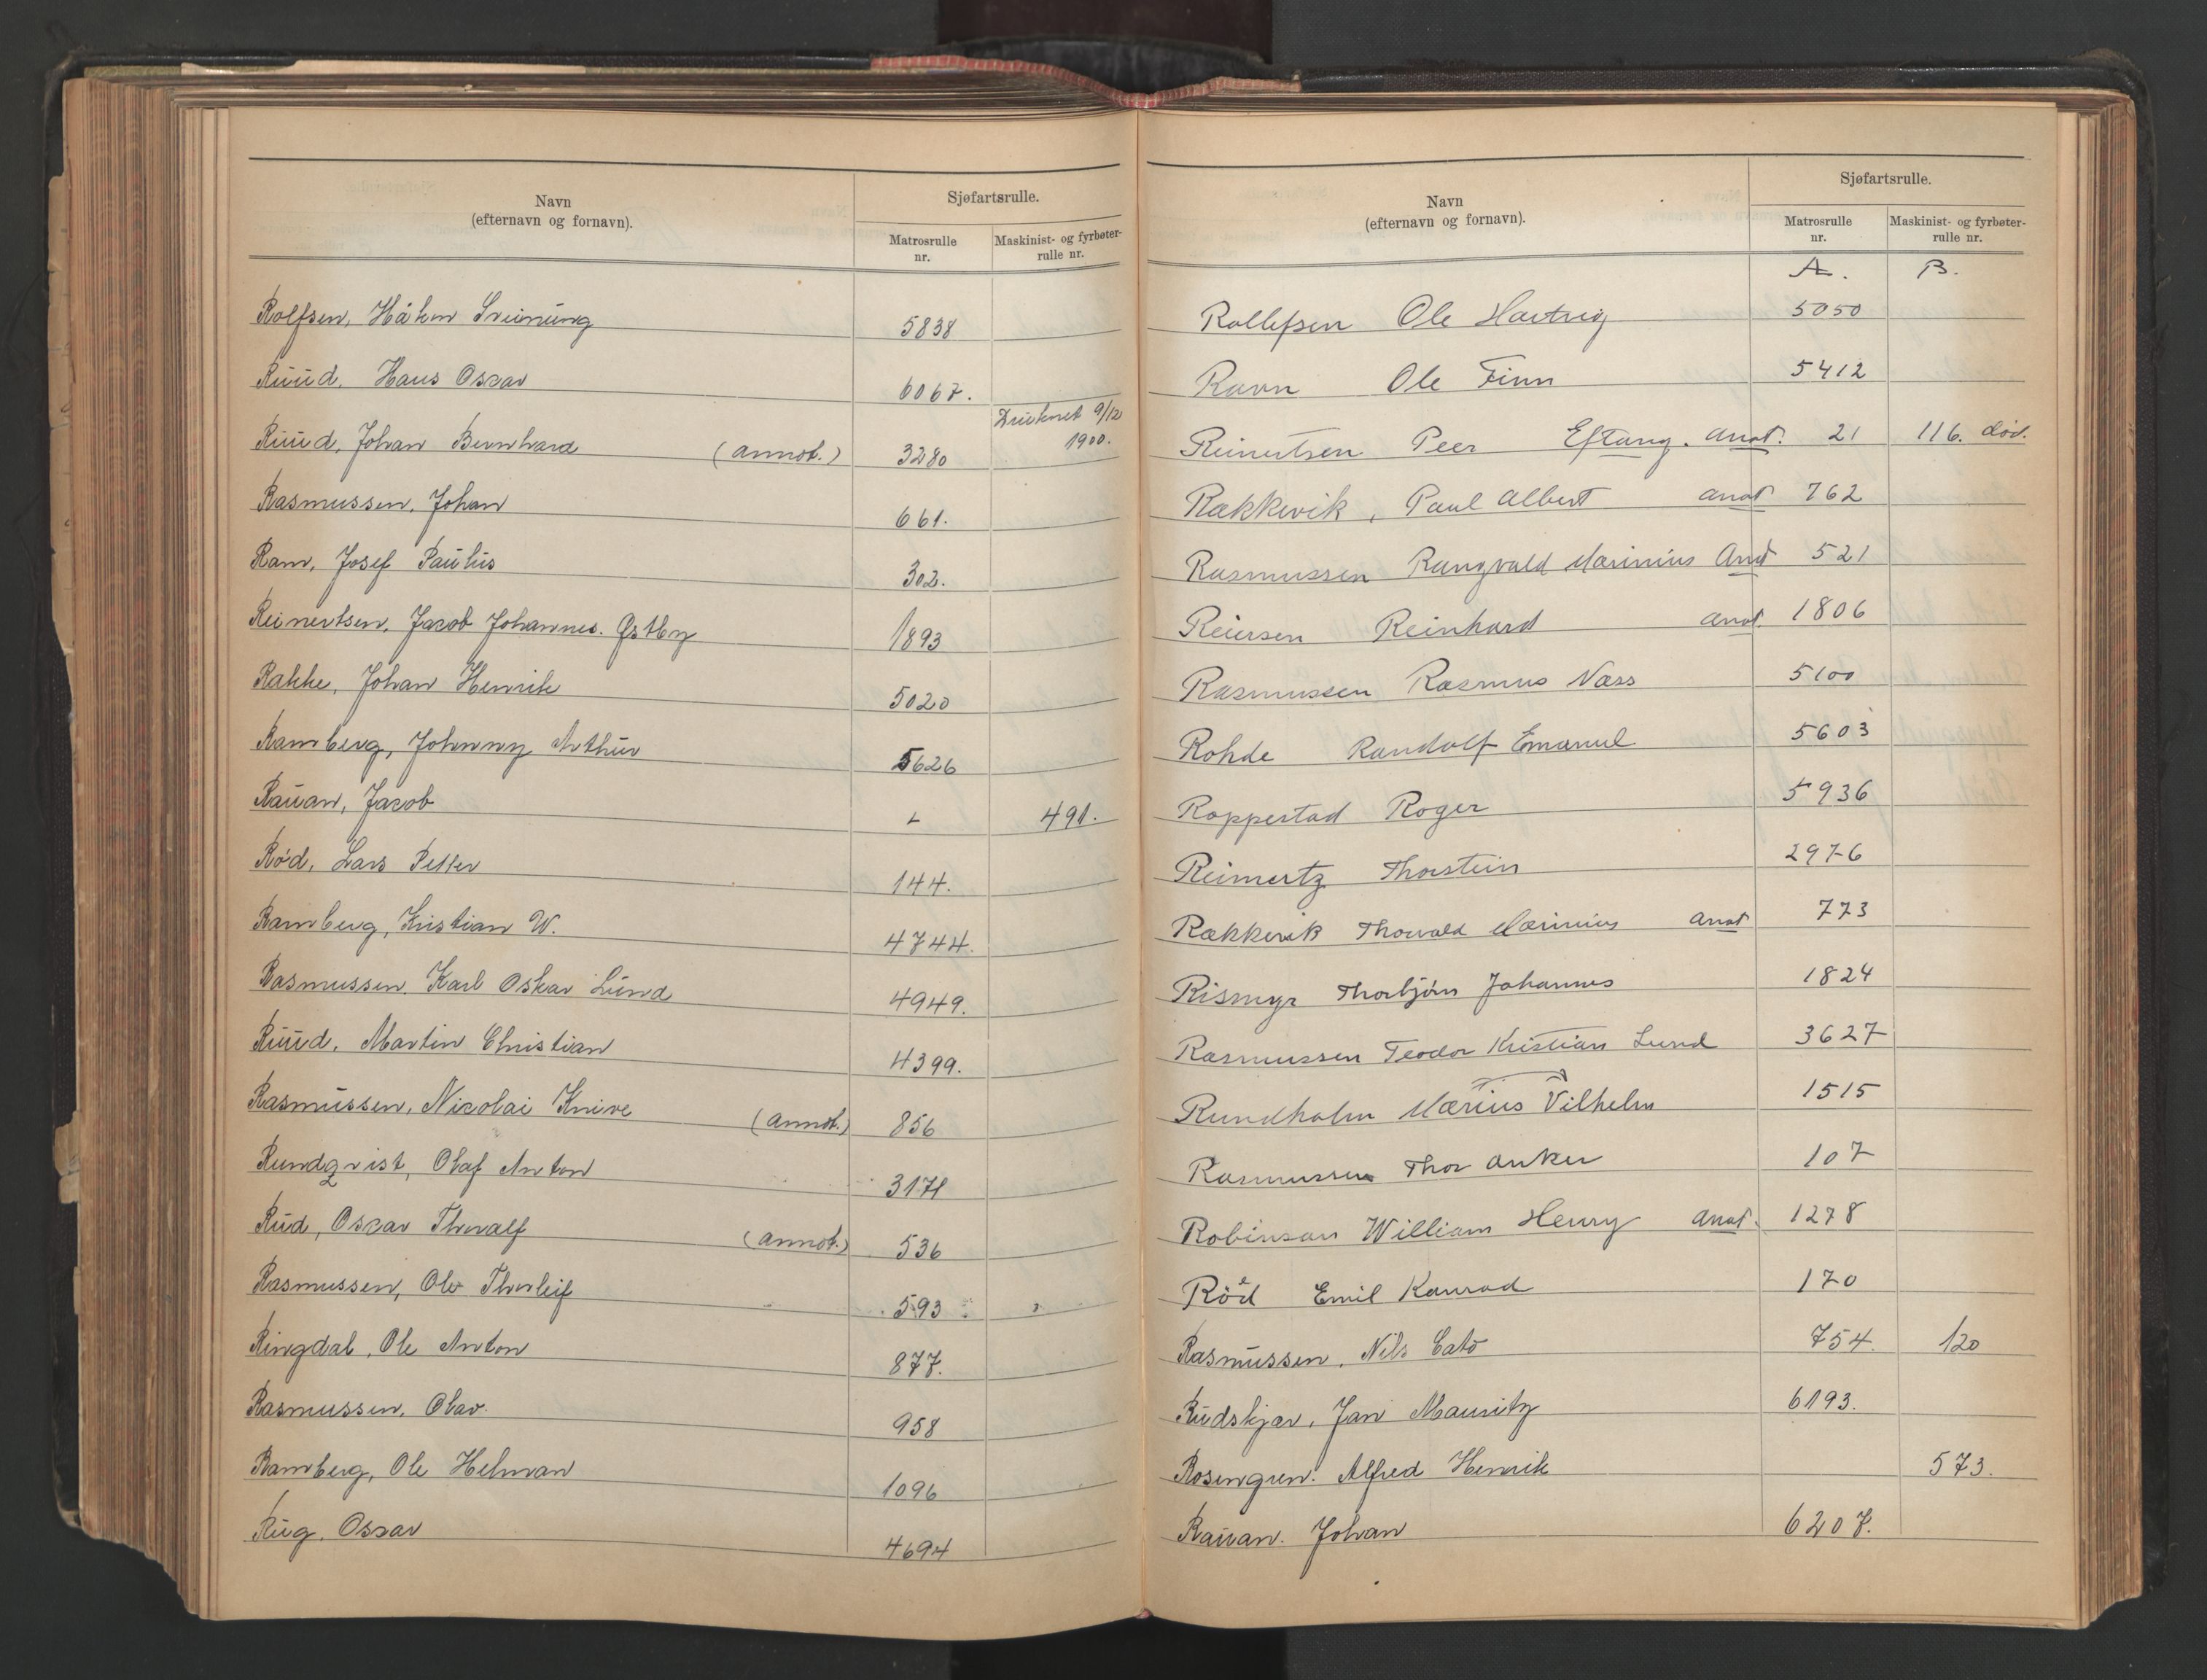 Navn
(efternavn og fornavn).
Sjøfartsrulle.
Matrosrulle
nr.
Maskinist- og fyrbøter-
rulle nr.
Rolfsen, Håkon Sveinung 5838
Ruud, Hans Oscar 6067.
Druknet 9/12
1900.
Ruud, Johan Bernhard (annot.) 3280
Rasmussen, Johan 661.
Ram, Josef Paulus 302.
Reinertsen, Jacob Johannes. Østby 1893
Rakke, Johan Henrik 5020
Ramberg, Johnny Arthur 5626
Rauan, Jacob 491.
Rød, Lars Petter 144.
Ramberg, Kristian W. 4744.
Rasmussen. Karl Oskar Lund 4949.
Ruud, Martin Christian 4399.
Rasmussen, Nicolai Knive (annot.) 856
Rundqvist, Olaf Anton
Rud, Oscar Thoralf (annot.) 536
Rasmussen, Ole Thorleif 593
Ringdal, Ole Anton 877.
Rasmussen, Olav. 958
Ramberg, Ole Helman 1096
Rug, Oscar 4694
Navn
(efternavn og fornavn).
Sjøfartsrulle.
Matrosrulle
nr.
Maskinist- og fyrbøter-
rulle nr.
A. B.
Rollefsen Ole Hartvig 5050
Ravn Ole Finn 5412
Reinertsen Peer Eftang. Anot. 21 116. død.
Rakkevik, Paul Albert anot 762
Rasmussen Rangvald Marinius Anot 521
Reiersen Reinhard anot. 1806
Rasmussen Rasmus Næss 5100
Rohde Randolf Emanuel 5603
Roppestad Roger 5936
Reimertz Thorstein 2976
Rakkevik Thorvald Marinius anot 773
Rismyr Thorbjørn Johannes 1824
Rasmussen Teodor Kristian Lund 3627
Rundholm Marius Vilhelm 1515
Rasmussen Thor Anker 107
Robinson William Henry Anot. 1278
Röed Emil Konrad 170
Rasmussen, Nils Cato 754. 120
Rudskjær, Jan Mauritz 6193.
Rosengren. Alfred Henrik 573.
Rauan. Johan 6207.